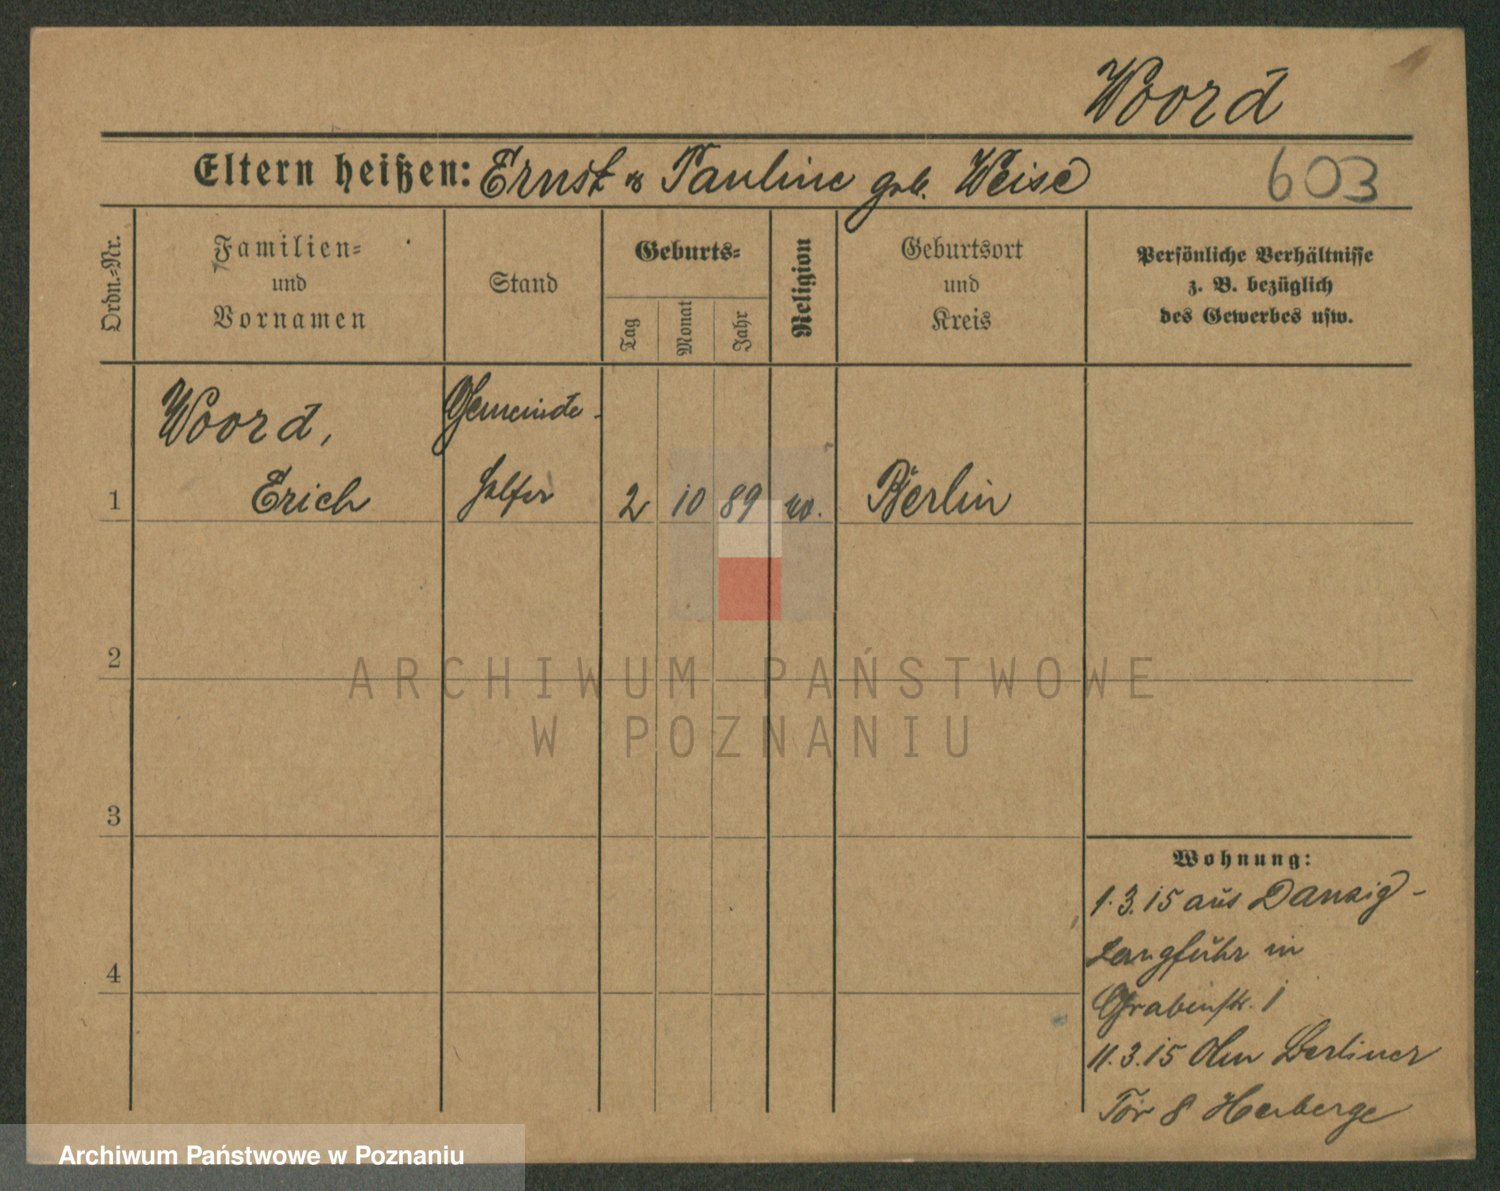 Woord
Eltern heißen: Ernst & Pauline geb. Weise
603
Ordn.=Nr.
Familien=
und
Vornamen
Stand
Geburts=
Tag
Monat
Jahr
Religion
Geburtsort
und
Kreis
Persönliche Verhältnisse
z. B. bezüglich
des Gewerbes usw.
Woord,
Erich
Gemeinde-
helfer
1
2 10 89 ev.
Berlin
2
3
4
Wohnung:
1.3.15 aus Danzig-
Langfuhr in
Grabenstr. 1
11.3.15 Am Berliner
Tor 8 Herberge
ARCHIWUM PAŃSTWOWE
W POZNANIU
Archiwum Państwowe w Poznaniu